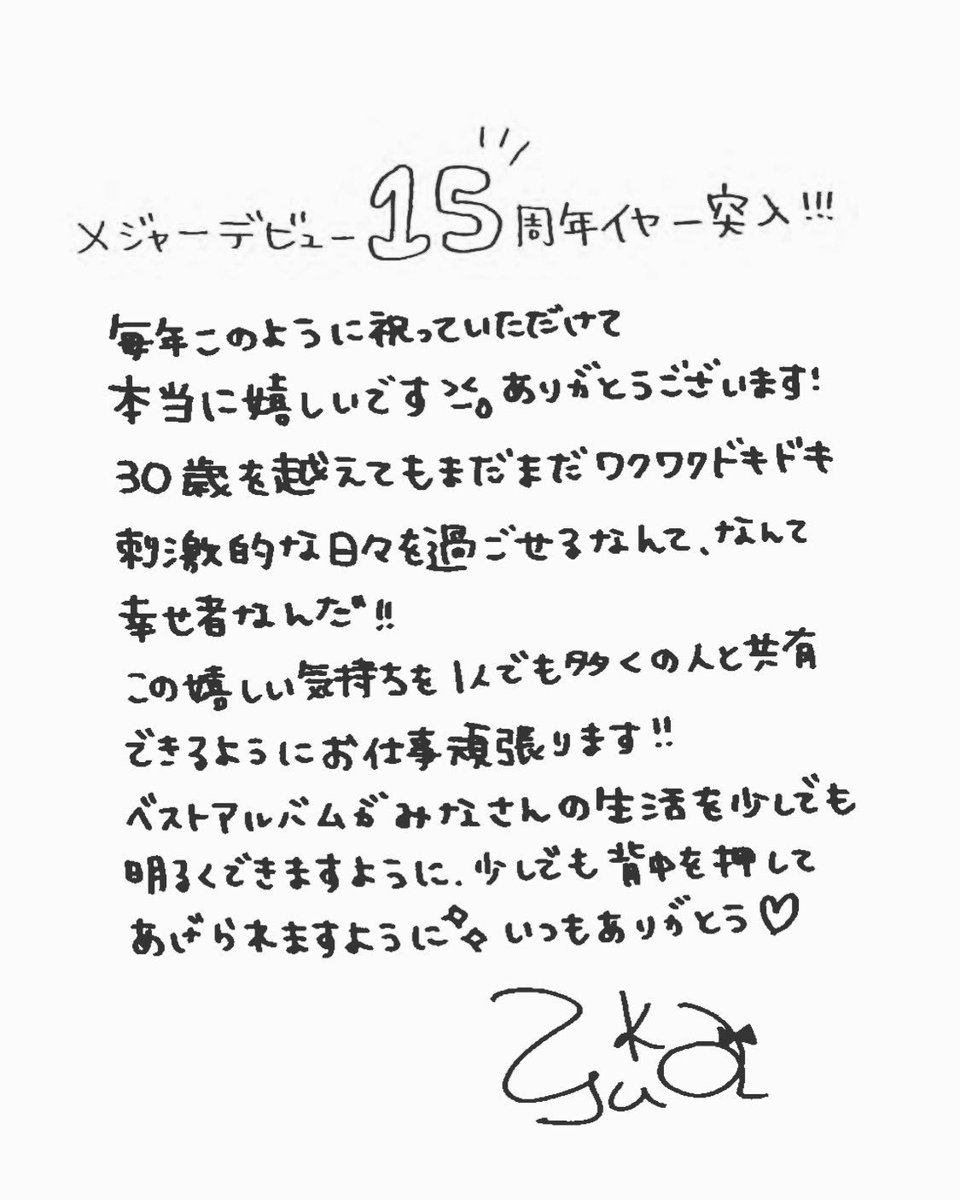 メジャーデビュー15周年イヤー突入!!!
毎年このように祝っていただけて
本当に嬉しいです><。ありがとうございます!
30歳を越えてもまだまだワクワクドキドキ
刺激的な日々を過ごせるなんて、なんて
幸せ者なんだ!!
この嬉しい気持ちを1人でも多くの人と共有
できるようにお仕事頑張ります!!
ベストアルバムがみなさんの生活を少しでも
明るくできますように、少しでも背中を押して
あげられますように いつもありがとう♡
Yuka